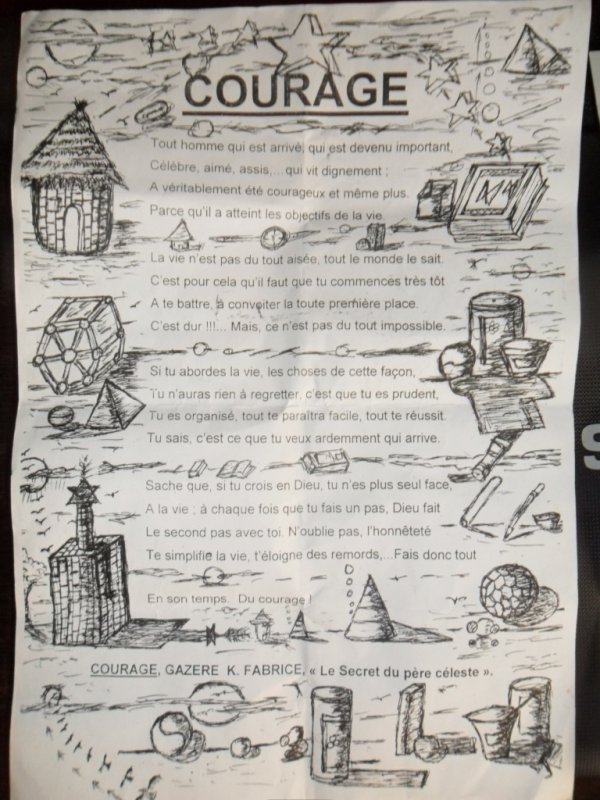 COURAGE
Tout homme qui est arrivé, qui est devenu important,
Célèbre, aimé, assis,... qui vit dignement ;
A véritablement été courageux et même plus.
Parce qu'il a atteint les objectifs de la vie.
La vie n'est pas du tout aisée, tout le monde le sait.
C'est pour cela qu'il faut que tu commences très tôt
A te battre, à convoiter la toute première place.
C'est dur !!!... Mais, ce n'est pas du tout impossible.
Si tu abordes la vie, les choses de cette façon,
Tu n'auras rien à regretter, c'est que tu es prudent,
Tu es organisé, tout te paraîtra facile, tout te réussit.
Tu sais, c'est ce que tu veux ardemment qui arrive.
Sache que, si tu crois en Dieu, tu n'es plus seul face,
A la vie ; à chaque fois que tu fais un pas, Dieu fait
Le second pas avec toi. N'oublie pas, l'honnêteté
Te simplifie la vie, t'éloigne des remords,...Fais donc tout
En son temps. Du courage !
COURAGE, GAZERE K. FABRICE, « Le Secret du père céleste ».
S